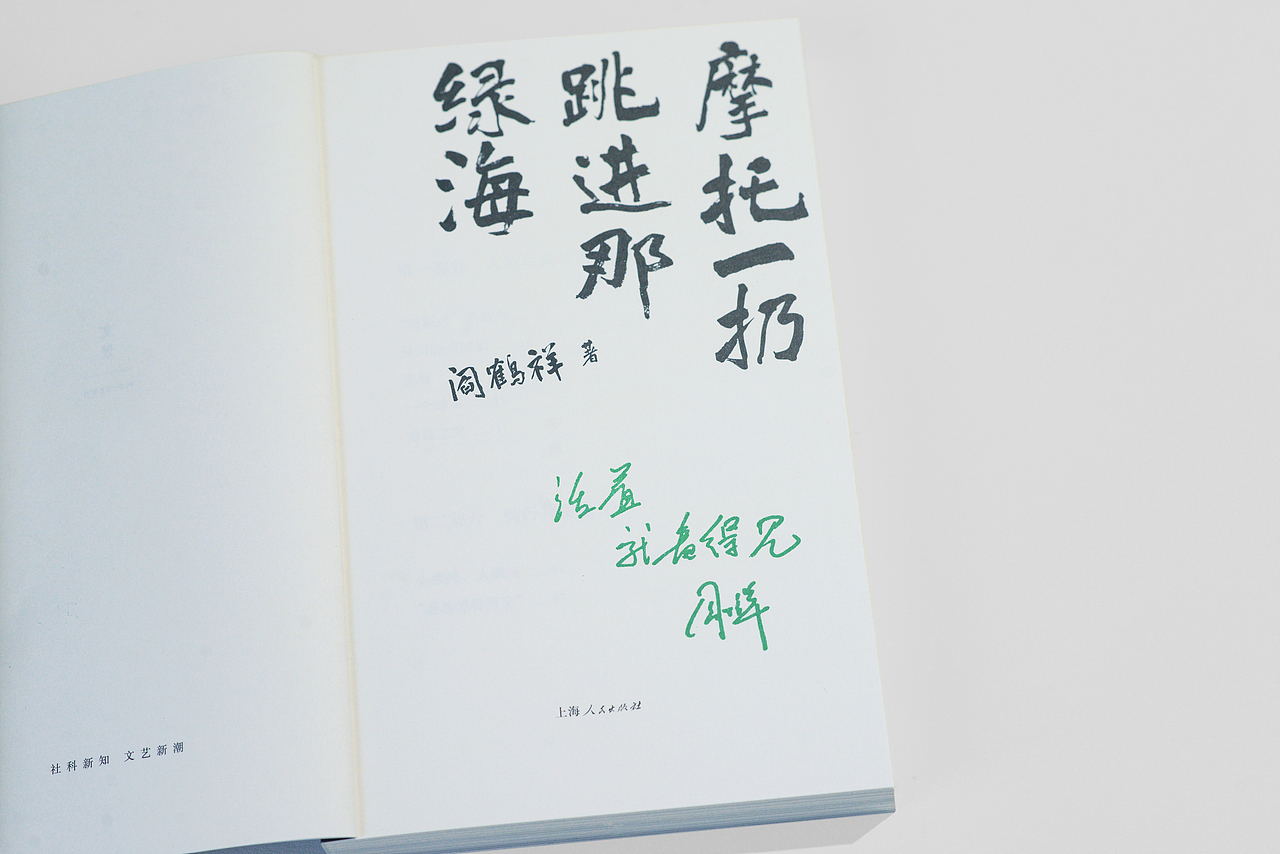 摩托一扔
跳进那
绿海
阎鹤祥 著
活着
就看得见
上海人民出版社
社科新知 文艺新潮